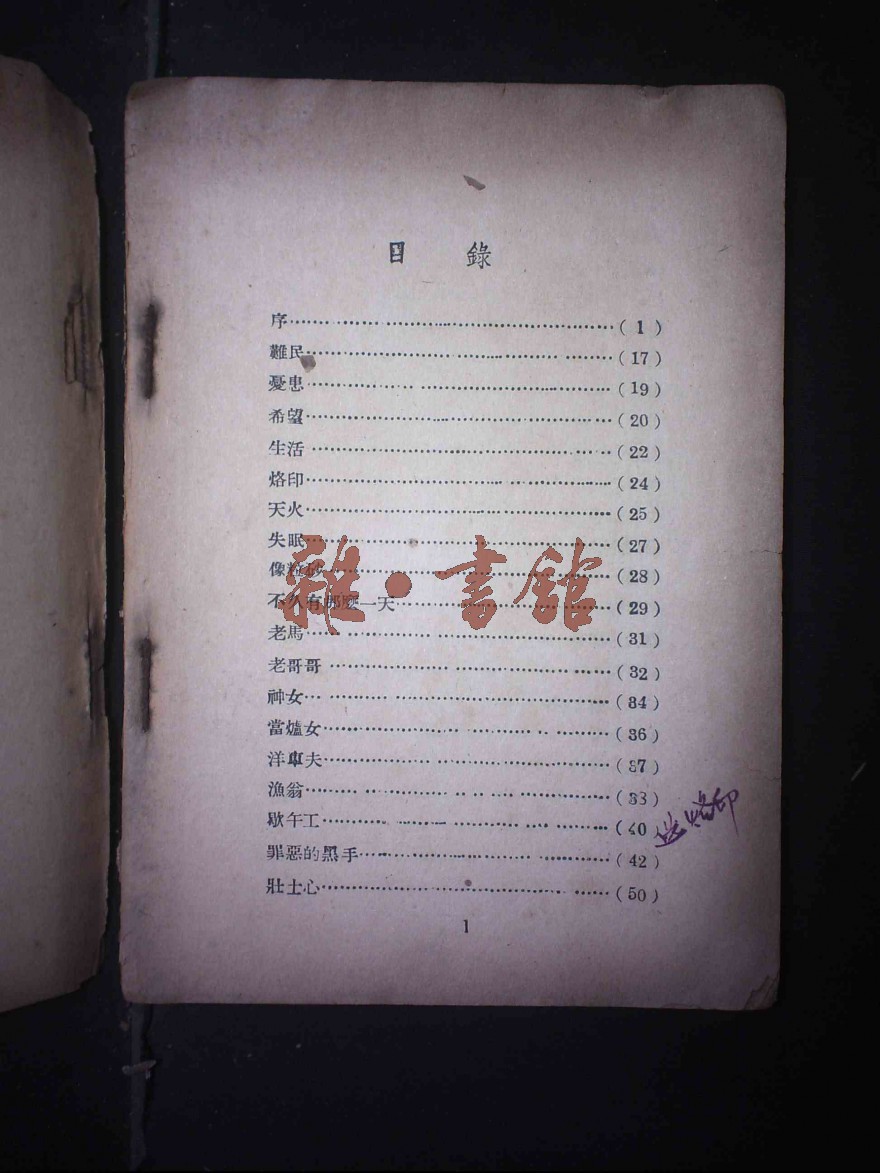 目 錄
序……………………………………(1)
難民……………………………………(17)
憂患……………………………………(19)
希望……………………………………(20)
生活……………………………………(22)
烙印……………………………………(24)
天火……………………………………(25)
失眠……………………………………(27)
像粒砂……………………………………(28)
不久有那麼一天……………………………(29)
老馬……………………………………(31)
老哥哥……………………………………(32)
神女……………………………………(34)
當爐女……………………………………(36)
洋車夫……………………………………(37)
漁翁……………………………………(38)
歇午工……………………………………(40)
罪惡的黑手………………………………(42)
壯士心……………………………………(50)
烙印
1
雜·書館